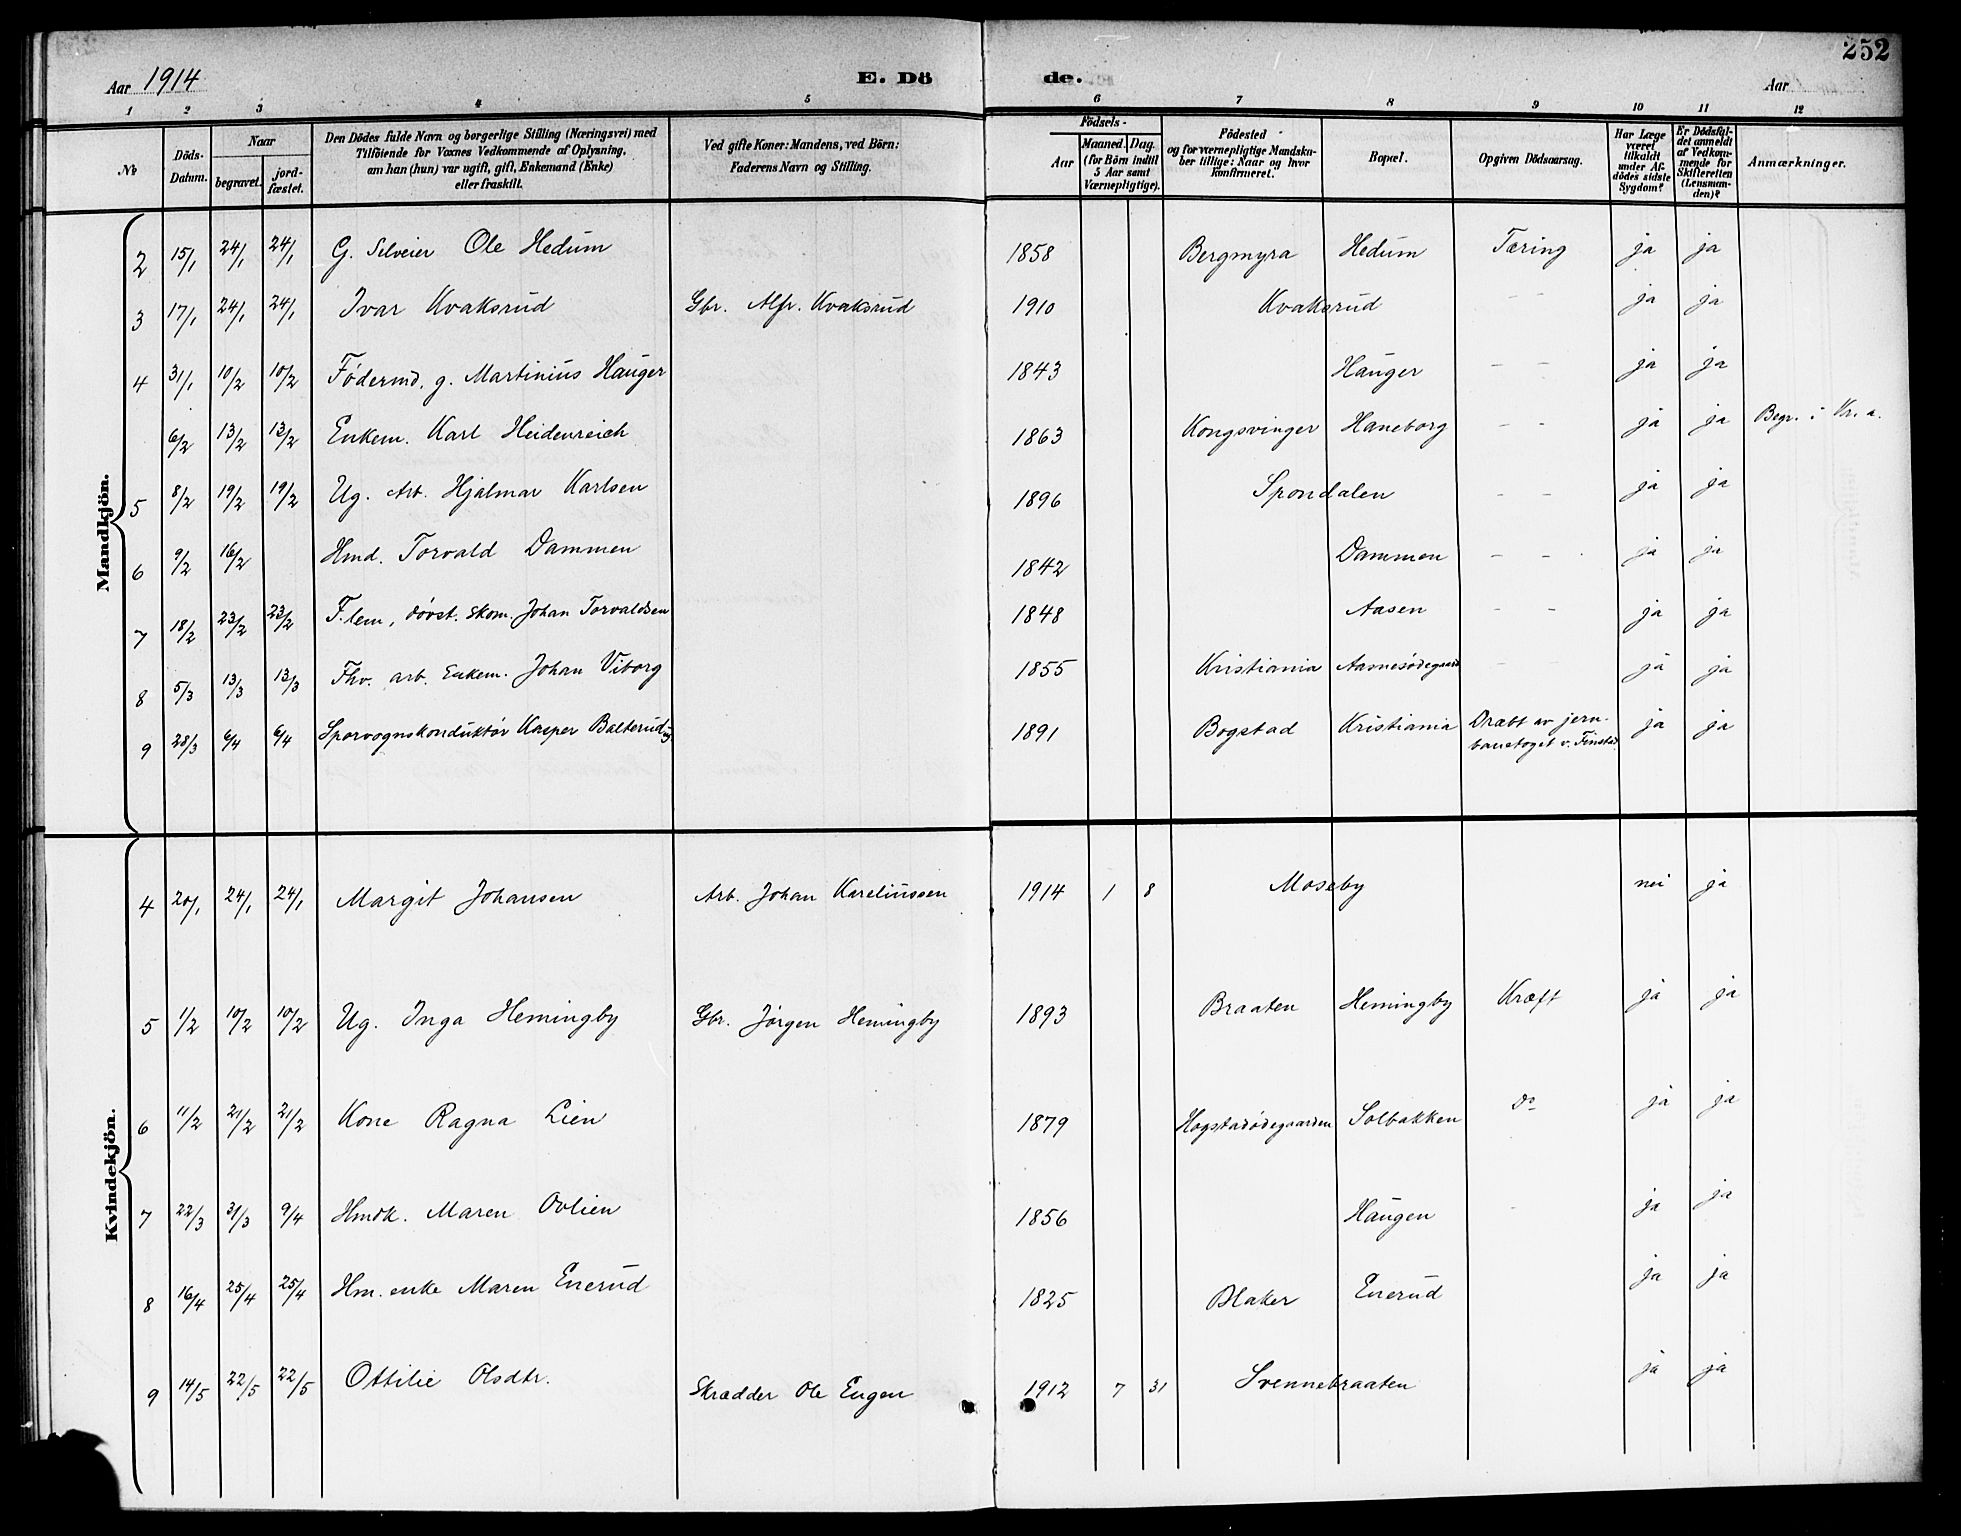 252
Aar 1914 E. Dö de. Aar
1 2 3 4 5 6 7 8 9 10 11 12
No
Döds-Datum.
Naar
begravet.
jord-fæstet.
Den Dödes fulde Navn og borgerlige Stilling (Næringsvei) med
Tilföiende for Voxnes Vedkommende af Oplysning,
om han (hun) var ugift, gift, Enkemand (Enke)
eller fraskilt.
Ved gifte Koner: Mandens, ved Börn:
Faderens Navn og Stilling.
Födsels-
Aar
Maaned. Dag.
(for Börn indtil
5 Aar samt
Værnepligtige).
Födested
og for værnepligtige Mandska-
ber tillige: Naar og hvor
konfirmeret.
Bopæl.
Opgiven Dödsaarsag.
Har Læge
været
tilkaldt
under Af-
dödes sidste
Sygdom?
Er Dödsfal-
det anmeldt
af Vedkom-
mende for
Skifteretten
(Lensman-
den)?
Anmærkninger.
Mandkjön.
2 15/1 24/1 24/1 G. Selveier Ole Hedum 1858 Bergmyra Hedum Tæring ja ja
3 17/1 24/1 24/1 Ivar Kvaksrud Gbr. Alfr. Kvaksrud 1910 Kvaksrud - - ja ja
4 31/1 10/2 10/2 Födermd. g. Martinius Hauger 1843 Hauger - - ja ja
6/2 13/2 13/2 Enkem. Karl Heidenreich 1863 Kongsvinger Haneborg - - ja ja Begr. i Kr.a.
5 8/2 19/2 19/2 Ug. Arb. Hjalmar Karlsen 1896 Spondalen - - ja ja
6 9/2 16/2 Hmd. Torvald Dammen 1842 Dammen - - ja ja
7 18/2 23/2 23/2 F.lem, døvst. skom. Johan Torvaldsen 1848 Aasen - - ja ja
8 5/3 13/3 13/3 Fhv. arb. Enkem. Johan Viborg 1855 Kristiania Aasnesødegaard - - ja ja
9 28/3 6/4 6/4 Sporvognskonduktør Kasper Balterud ug 1891 Bogstad Kristiania Dræbt av jern-
banetoget v. Finstad ja ja
Kvindekjön.
4 20/1 24/1 24/1 Margit Johansen Arb. Johan Kareliussen 1914 1 8 Moseby nei ja
5 1/2 10/2 10/2 Ug. Inga Hemingby Gbr. Jørgen Hemingby 1893 Braaten Hemingby Kræft ja ja
6 11/2 21/2 21/2 Kone Ragna Lien 1879 Hogstadødegaarden Solbakken Do ja ja
7 22/3 31/3 9/4 Hmdk. Maren Ovlien 1856 Haugen - ja ja
8 16/4 25/4 25/4 Hm. enke Maren Enerud 1825 Blaker Enerud ja ja
9 14/5 22/5 22/5 Ottilie Olsdtr. Skrædder Ole Engen 1912 7 31 Svennebraaten ja ja